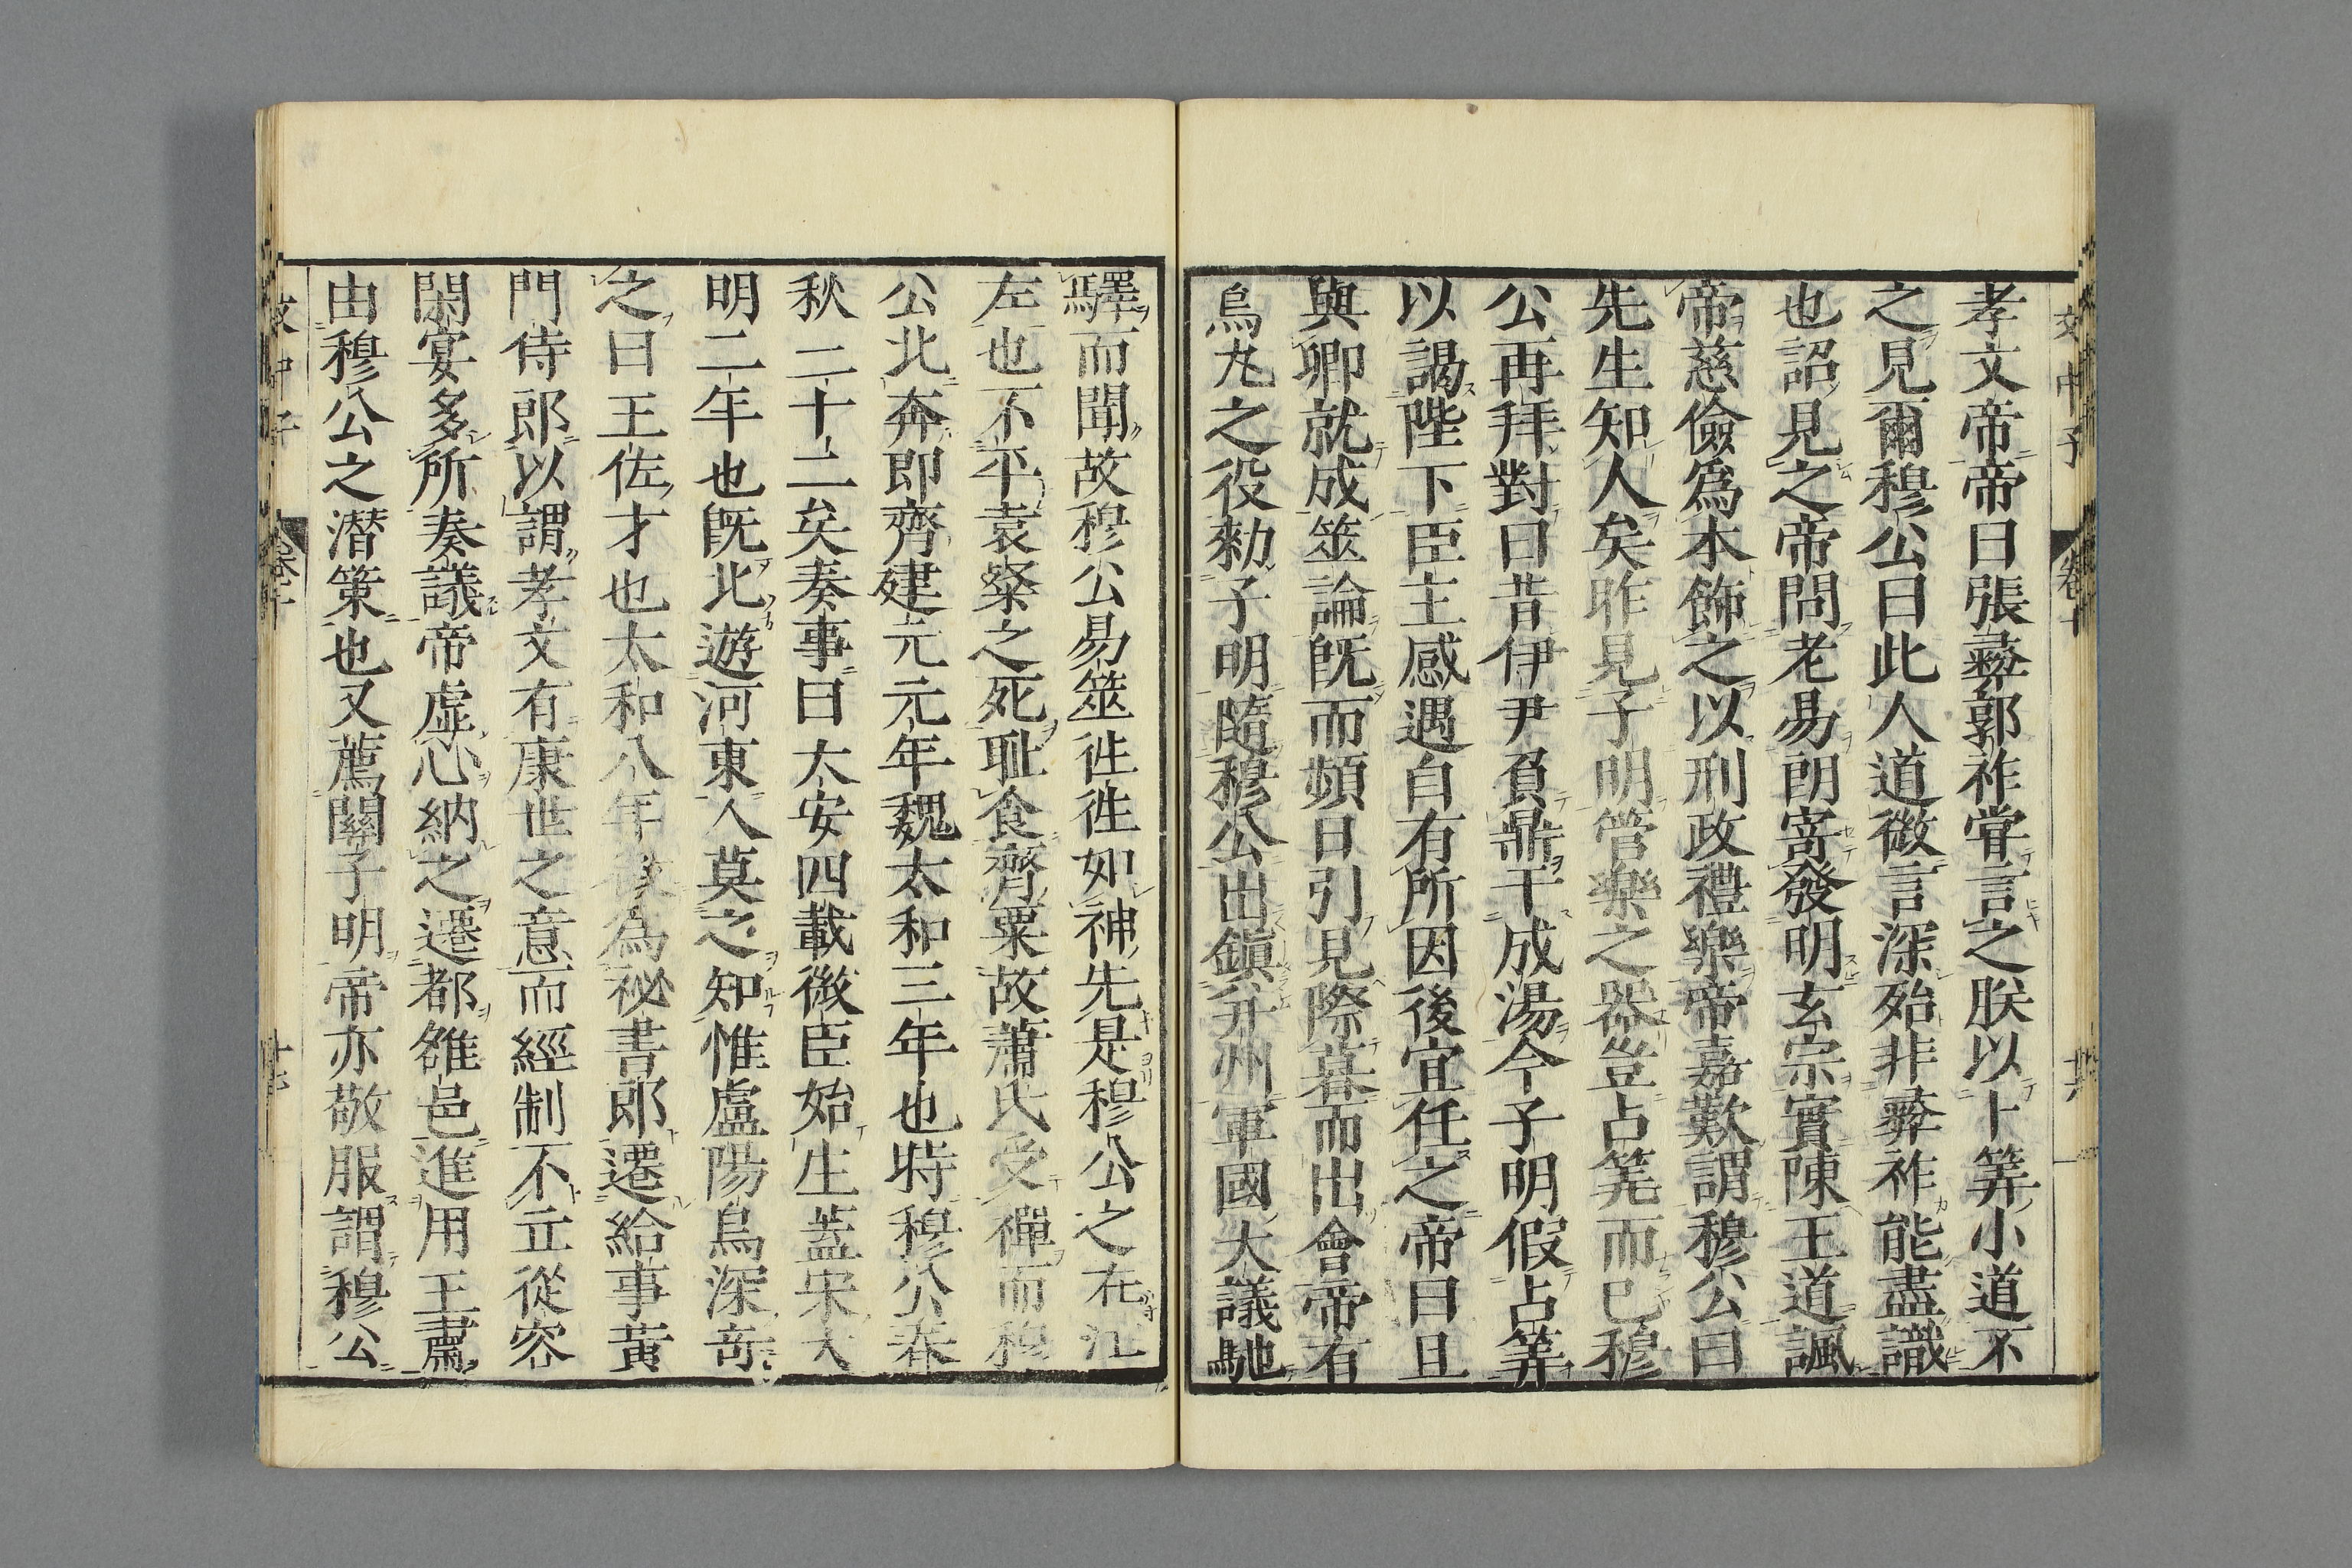 孝文帝帝曰張彝郭祚甞言之朕以卜筭小道不
之見爾穆公曰此人道微言深殆非彝祚能盡識
也詔見之帝問老易朗寄發明玄宗實陳王道諷
帝慈儉爲本飾之以刑政禮樂帝嘉歎謂穆公曰
先生知人矣昨見子明管樂之器豈占筭而已穆
公再拜對曰昔伊尹負鼎干成湯今子明假占筭
以謁陛下臣主感遇自有所因後宜任之帝曰且
與卿就成筮論旣而頻日引見際暮而出會帝有
烏丸之役勑子明隨穆公出鎮并州軍國大議馳
驛而聞故穆公易筮徃徃如神先是穆公之在江
左也不平袁粲之死耻食齊粟故蕭氏受禪而穆
公北奔卽齊建元元年魏太和三年也時穆公春
秋二十二矣奏事曰大安四載微臣始生蓋宋大
明二年也旣北遊河東人莫之知惟盧陽烏深竒
之曰王佐才也太和八年徵為祕書郎遷給事黃
門侍郎以謂孝文有康世之意而經制不立從容
閑宴多所奏議帝虛心納之遷都雒邑進用王肅
由穆公之潜策也又薦關子明帝亦敬服謂穆公
文中子 卷十